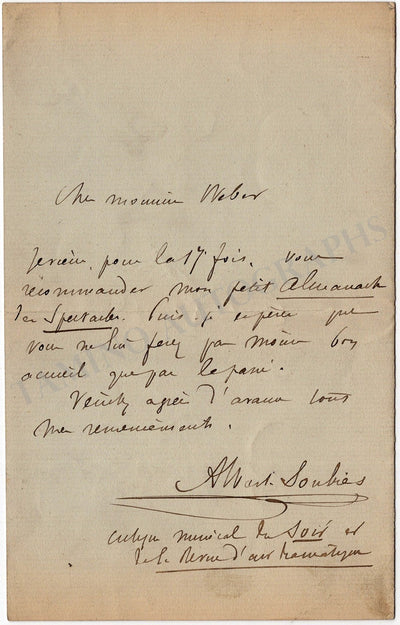 Cher monsieur Weber
Je viens, pour la 17e fois, vous
recommander mon petit Almanach
des Spectacles. Puis-je espérer que
vous ne lui ferez pas moins bon
accueil que par le passé.
Veuillez agréer d'avance tous
mes remerciements.
Albert Soubies
critique musical du Soir et
de la Revue d'art dramatique